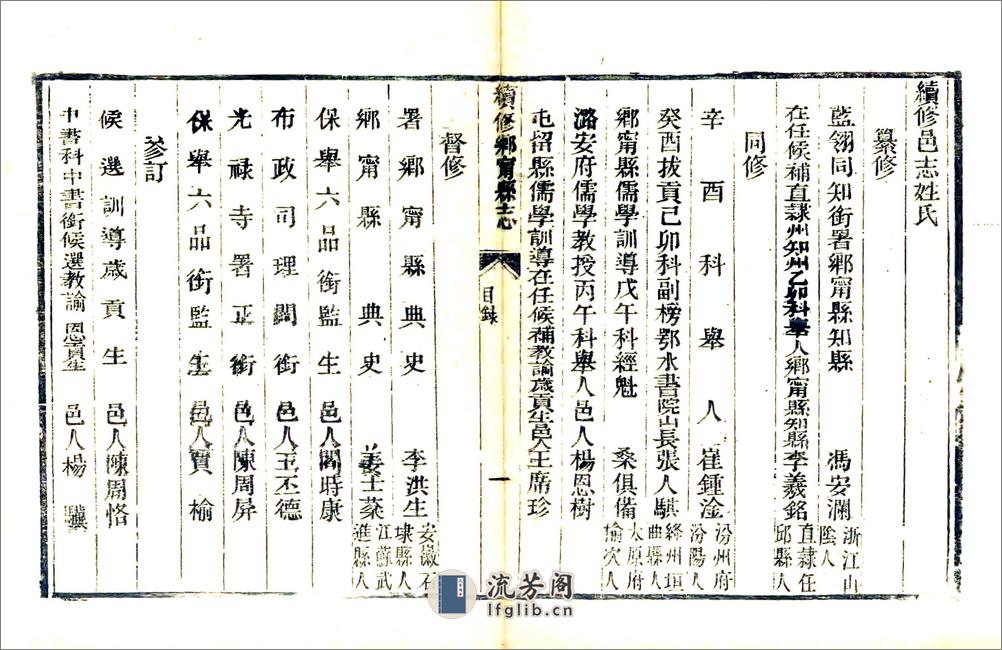 續修邑志姓氏
纂修
藍翎同知銜署鄉甯縣知縣 馮安瀾 浙江山陰人
在任候補直隸州知州乙卯科舉人鄉甯縣知縣李羲銘 直隸任邱縣人
同修
辛酉科舉人崔鍾淦 汾州府汾陽人
癸酉拔貢己卯科副榜鄂水書院山長張人騏 絳州垣曲縣人
鄉甯縣儒學訓導戊午科經魁 桑俱備 太原府榆次人
潞安府儒學教授丙午科舉人邑人楊恩樹
屯留縣儒學訓導在任候補教諭歲貢生邑人王席珍
續修鄉甯縣志
目錄
一
督修
署鄉甯縣典史 李洪生 安徽石埭縣人
鄉甯縣典史 姜士菜 江蘇武進縣人
保舉六品銜監生 邑人閻時康
布政司理問銜 邑人王丕德
光祿寺署正銜 邑人陳周屏
保舉六品銜監生 邑人賈榆
參訂
候選訓導歲貢生 邑人陳周恪
中書科中書銜候選教諭恩貢生 邑人楊驥
流芳阁
lfglib.cn